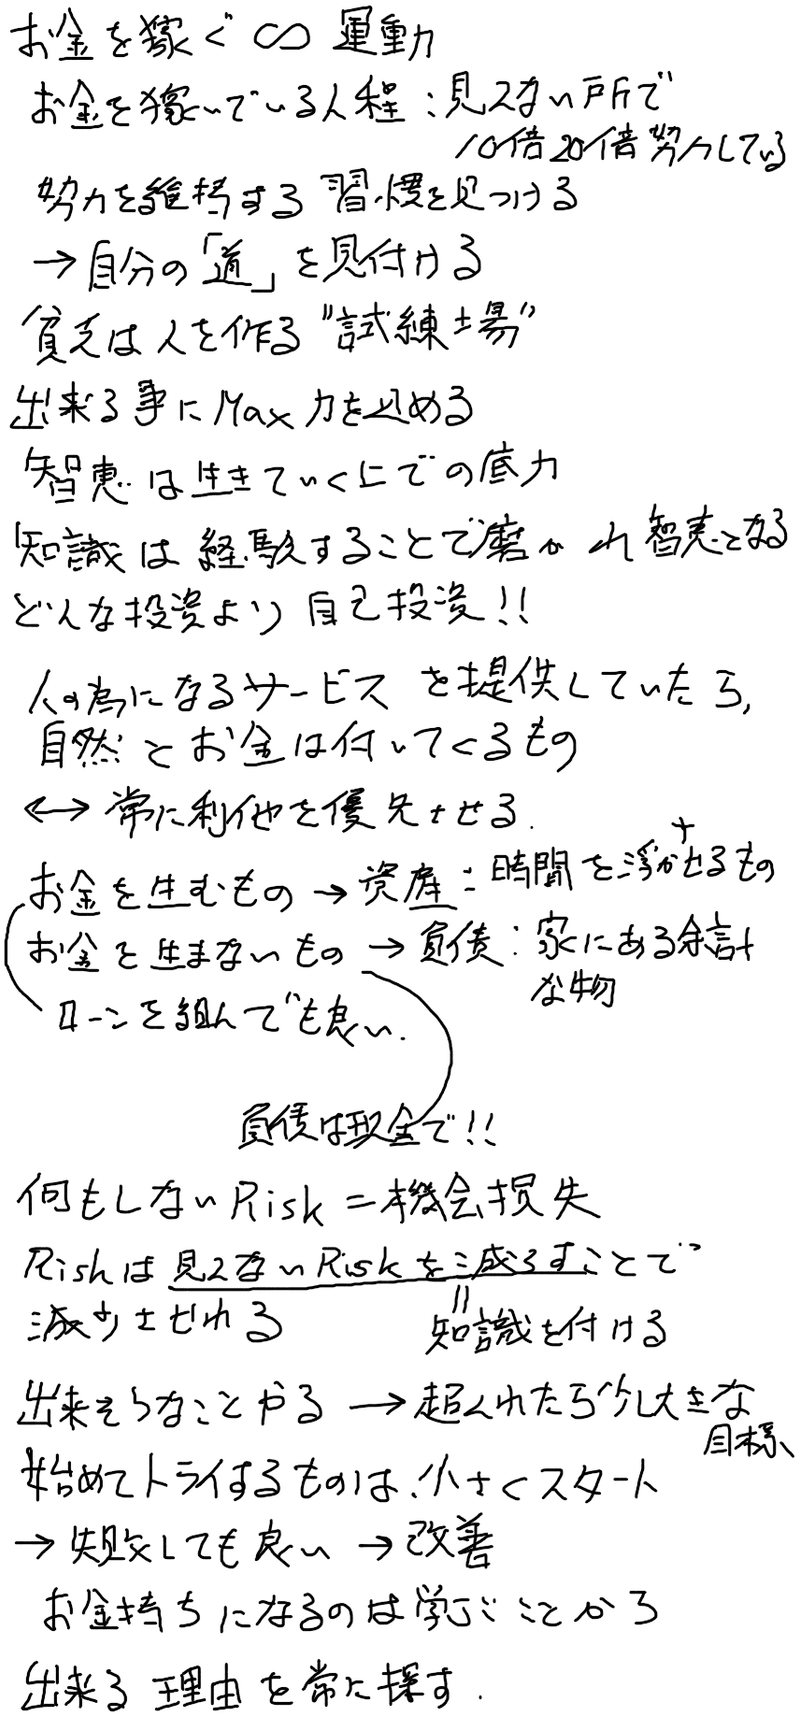 お金を稼ぐ ∽ 運動
お金を稼いでいる人程:見えない所で
10倍20倍努力している
努力を維持する習慣を見つける
→自分の「道」を見付ける
貧乏は人を作る"試練場"
出来る事にMax力を込める
智恵は生きていく上での底力
知識は経験することで磨かれ智恵となる
どんな投資より自己投資!!
人の為になるサービスを提供していたら,
自然とお金は付いてくるもの
↔常に利他を優先させる.
お金を生むもの→資産:時間を浮かさせるもの
お金を生まないもの→負債:家にある余計
な物
ローンを組んでも良い.
負債は現金で!!
何もしないRisk=機会損失
Riskは見えないRiskを減らすことで
減少させれる
=知識を付ける
出来そうなことやる→超えれたら少し大きな
目標、
始めてトライするものは、小さくスタート
→失敗しても良い→改善
お金持ちになるのは学ぶことから
出来る理由を常に探す.